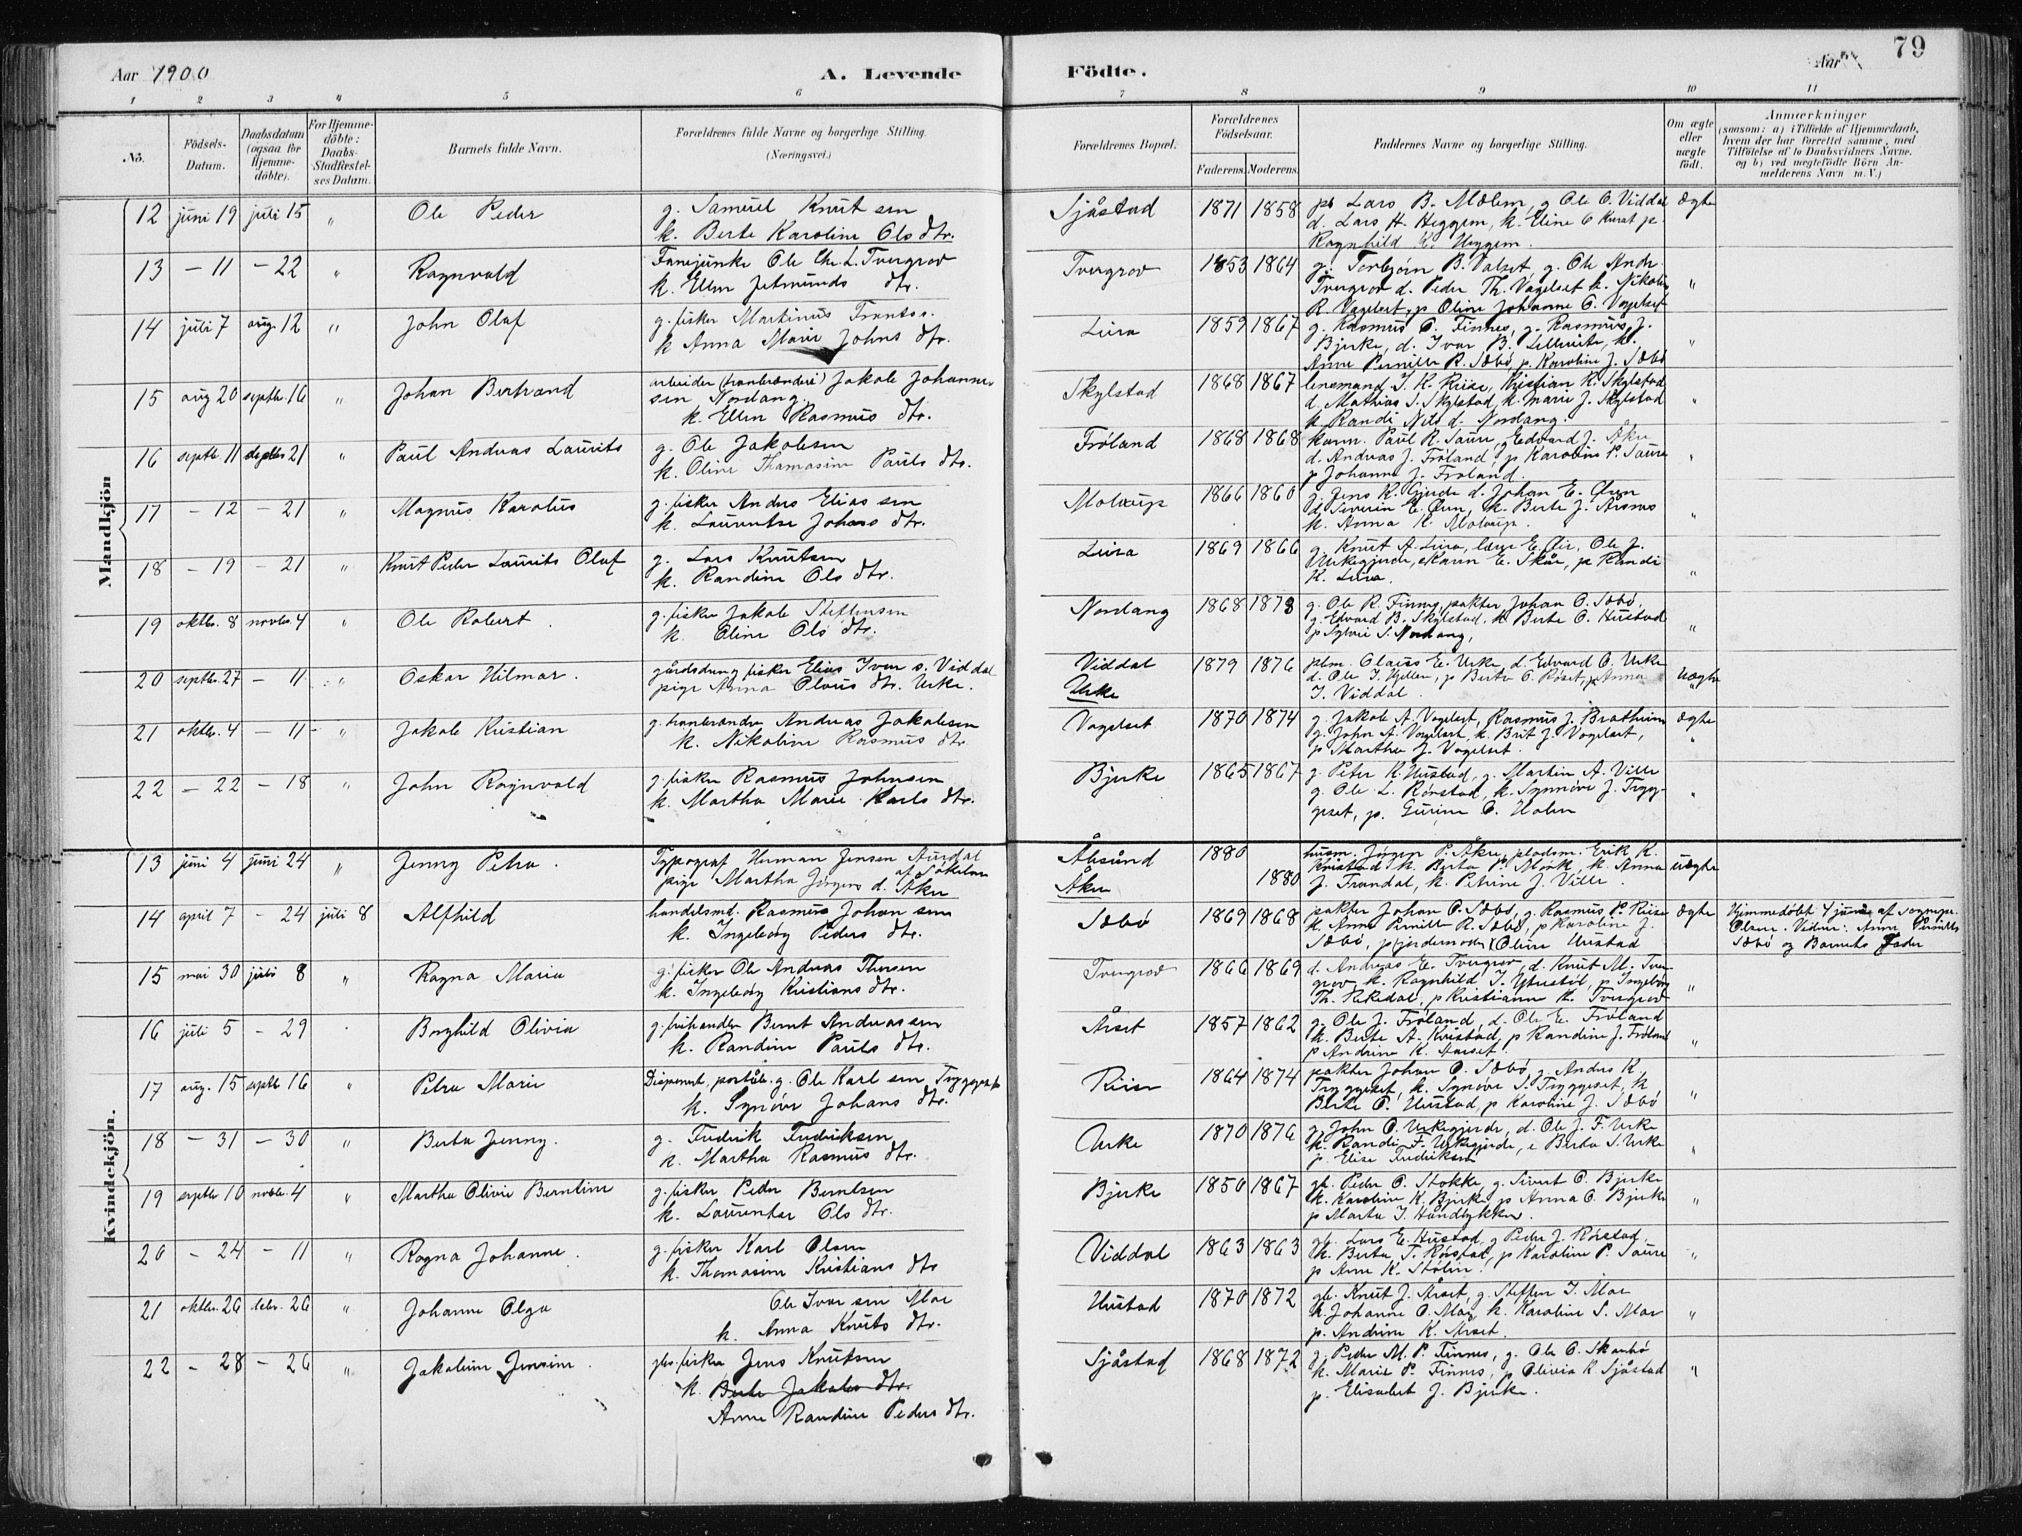 79
Aar 1900
A. Levende
Födte.
Aar
1 2 3 4 5 6 7 8 9 10 11
No.
Födsels-Datum.
Daabsdatum (ogsaa for Hjemme-döbte).
For Hjemme-döbte: Daabs-Stadfæstel-ses Datum.
Barnets fulde Navn.
Forældrenes fulde Navne og borgerlige Stilling.
(Næringsvei.)
Forældrenes Bopæl.
Forældrenes Födselsaar.
Faderens. Moderens.
Faddernes Navne og borgerlige Stilling.
Om ægte eller uægte födt.
Anmærkninger
(saasom: a) i Tilfælde af Hjemmedaab,
hvem der har forrettet samme, med
Tilföielse af to Daabsvidners Navne.
og b) ved uægtefödte Börn An-
melderens Navn m. V.)
Mandkjön
12 juni 19 juli 15 " Ole Peder
g. Samuel Knutsen
k. Berte Karoline Ols dtr.
Sjåstad 1871 1858
Lars B. Mælem, g Ole O. Viddal
d. Lars H. Heggem, k. Eline O
Ragnhild K. Heggem.
Ægte
13 – 11 – 22 " Ragnvald
Fanejunker Ole Chr. L. Tvergrov
k. Ellen Jetmunds dtr.
Tvergrov 1853 1864
g. Torbjørn B. Valset, g. Ole Andr.
Tvergrov d. Peder Th. Vagelset k. Nikoline
R. Vagelset, p Oline Johanne O. Vagelset
"
14 juli 7 aug. 12 " John Olaf
g. fisker Martinus Frants s.
k Anna Marie Johns dtr.
Leira 1859 1867
g. Rasmus O. Finnes, g. Rasmus J.
Bjerke, d. Ivar B.
Anne Pernille R. Sæbø p. Karoline J. Sæbø
"
15 aug 20 septb. 16 " Johan Bertrand
arbeider Jakob Johanne-
sen Nordang.
k. Ellen Rasmus dtr.
Skylstad 1868 1867
lensmand J. K. Riise, Kristian K. Skylstad
d. Mathias J. Skylstad, k. Marie J. Skylstad
k Randi Nils d. Nordang.
"
16 septb 11 septb 21 " Paul Andreas Laurits
g. Ole Jakobsen
k. Oline Thomasine Pauls dtr.
Frøland 1868 1868
Paul R. Saure, Edvard J. Åker
d. Andreas J. Frøland, p Karoline P. Saure
p Johanne J. Frøland.
"
17 – 12 – 21 " Magnus Karolus
g. fisker Anders Eliassen
k. Laurentse Johans dtr.
Molaup 1866 1860
g. Jens K. Gjerde d. Johan E. Øren
d. Severin E. Øren, k. Berte J. Årsnes
k. Anna K. Molaup.
"
18 – 19 – 21 " Knut Peder Laurits Olaf
g. Lars Knutsen
k. Randine Ols dtr.
Leira 1869 1866
g. Knut A. Leira, Ole J.
Urkegjerde, Karen E. Skår, p Randi
K. Leira.
"
19 oktbr. 8 novbr. 4 " Ole Robert.
g. fisker Jakob Steffensen
k. Oline Ols dtr.
Nordang 1868 1878
g. Ole R. Finnes, pakter Johan O. Sæbø,
g. Edvard B. Skylstad, k. Berte O. Hustad
p Sylvie S. Nordang,
"
20 septbr. 27 – 11 " Oskar Hilmar.
gårdsdreng fisker Elias Ivar s. Viddal
pige Anna Olaus dtr. Urke.
Viddal
Urke
1879 1876
Olaus E. Urke, d. Edvard O. Urke
d. Ole J. Hjellen, p Berte O. Røset, p Anna
J. Viddal.
uægte
21 oktbr. 4 – 11 – " Jakob Kristian
g. tranbrænder Andreas Jakobsen
k. Nikoline Rasmus dtr.
Vagelset 1870 1874
g. Jakob A. Vagelset, Rasmus J. Bratheim
g. John A Vagelset, k. Brit J Vagelset,
p Martha J. Vagelset.
ægte
22 – 22 – 18 " John Ragnvald
g. fisker Rasmus Johnsen
k. Martha Marie Karls dtr.
Bjerke 1865 1867
g. Peter K. Hustad, g. Martin A. Ville
g. Ole L. Rørstad, k. Synnøve J. Tryg-
geset, p. Gurine O. Holen
"
Kvindekjön.
13 juni 4 juni 24 " Jenny Petra.
Typograf Herman Jensen Aurdal
pige Martha Jørgens d. Åker
Ålesund
Åker
1880 1880
husm. Jørgen P. Åker, pladsm. Erik K.
Kristad k. Berte P. Mork, k. Anna
J. Trandal, k. Petrine J. Ville.
uægte
14 april 7 – 24 juli 8 Alfhild
handelsmd. Rasmus Johansen
k. Ingeborg Peders dtr.
Sæbø 1869 1868
pakter Johan O. Sæbø, g. Rasmus P. Riise
k. Anne Pernille R. Sæbø, p Karoline J.
Sæbø, p jordemoder Oline Hustad
Ægte
Hjemmedøbt 4 juni af sognepr.
Olsen. Vidner: Anne Pernille
Sæbø og Barnets Fader
15 mai 30 juli 8 " Ragna Marie
g. fisker Ole Andreas Thorsen
k. Ingeborg Kristians dtr.
Tvergrov 1866 1869
d. Andreas E. Tvergrov, d. Knut M. Tver-
grov k. Ragnhild J. Ytrestøl, p Ingeborg
Th. Rekkedal, p Kristianne K. Tvergrov
"
16 juli 5 – 29 Borghild Olivia
g. Bernt Andreassen
k. Randine Pauls dtr.
Årset 1857 1862
g. Ole J. Frøland d. Ole E. Frøland
k. Berte A. Kristad, p Randine J. Frøland
p Andrine K. Aarset.
"
17 aug. 15 septb 16 " Petra Marie
g. Ole Karlsen Tryggeset
k. Synøve Johans dtr.
Riise 1864 1874
pakter Johan O. Sæbø, g Anders K,
Tryggeset, k. Synøve S. Tryggeset, k
Berte O. Hustad, p Karoline J. Sæbø
"
18 – 31 – 30 " Berta Jenny.
g. Fredrik Fredriksen
k. Martha Rasmus dtr.
Urke 1870 1876
g. John O. Urkegjerde, d. Ole J. F. Urke
k. Randi F. Urkegjerde, e Berta S. Urke
p. Elise Fredriksen
"
19 septb 10 novbr. 4 " Martha Olivie Berntine
g. fisker Peder Berntsen
k. Laurentse Ols dtr.
Bjerke 1850 1867
gb. Peder O. Stokke, g. Sivert O. Bjerke
k. Karoline K. Bjerke, p Anna O. Bjerke
p Marta J. Håndlykken.
"
20 – 24 – 11 " Ragna Johanne.
g. fisker Karl Olsen
k. Thomasine Kristians dtr
Viddal 1863 1863
gb. Lars E. Hustad, g Peder J. Rørstad,
k. Berte T. Rørstad, p Karoline P. Saure
p Anne K. Stølin.
"
21 oktbr. 26 26 " Johanne Olga
Ole Ivarsen Mar
k. Anna Knuts dtr.
Hustad 1870 1872
gb. Knut J. Årset, g. Steffen J. Mar
k Johanne O. Mar, k. Karoline S. Mar
p. Andrine K. Årset.
"
22 – 28 – 26 " Jakobine Jensine.
gbr. fisker Jens Knutsen
k. Berte Jakobs dtr.
Anne Randine Peders dtr.
Sjåstad 1868 1872
g. Peder M. P. Finnes, g. Ole O. Skarbø
k. Marie P. Finnes, p Olivia K Sjåstad
p. Elisabet J. Bjerke.
"